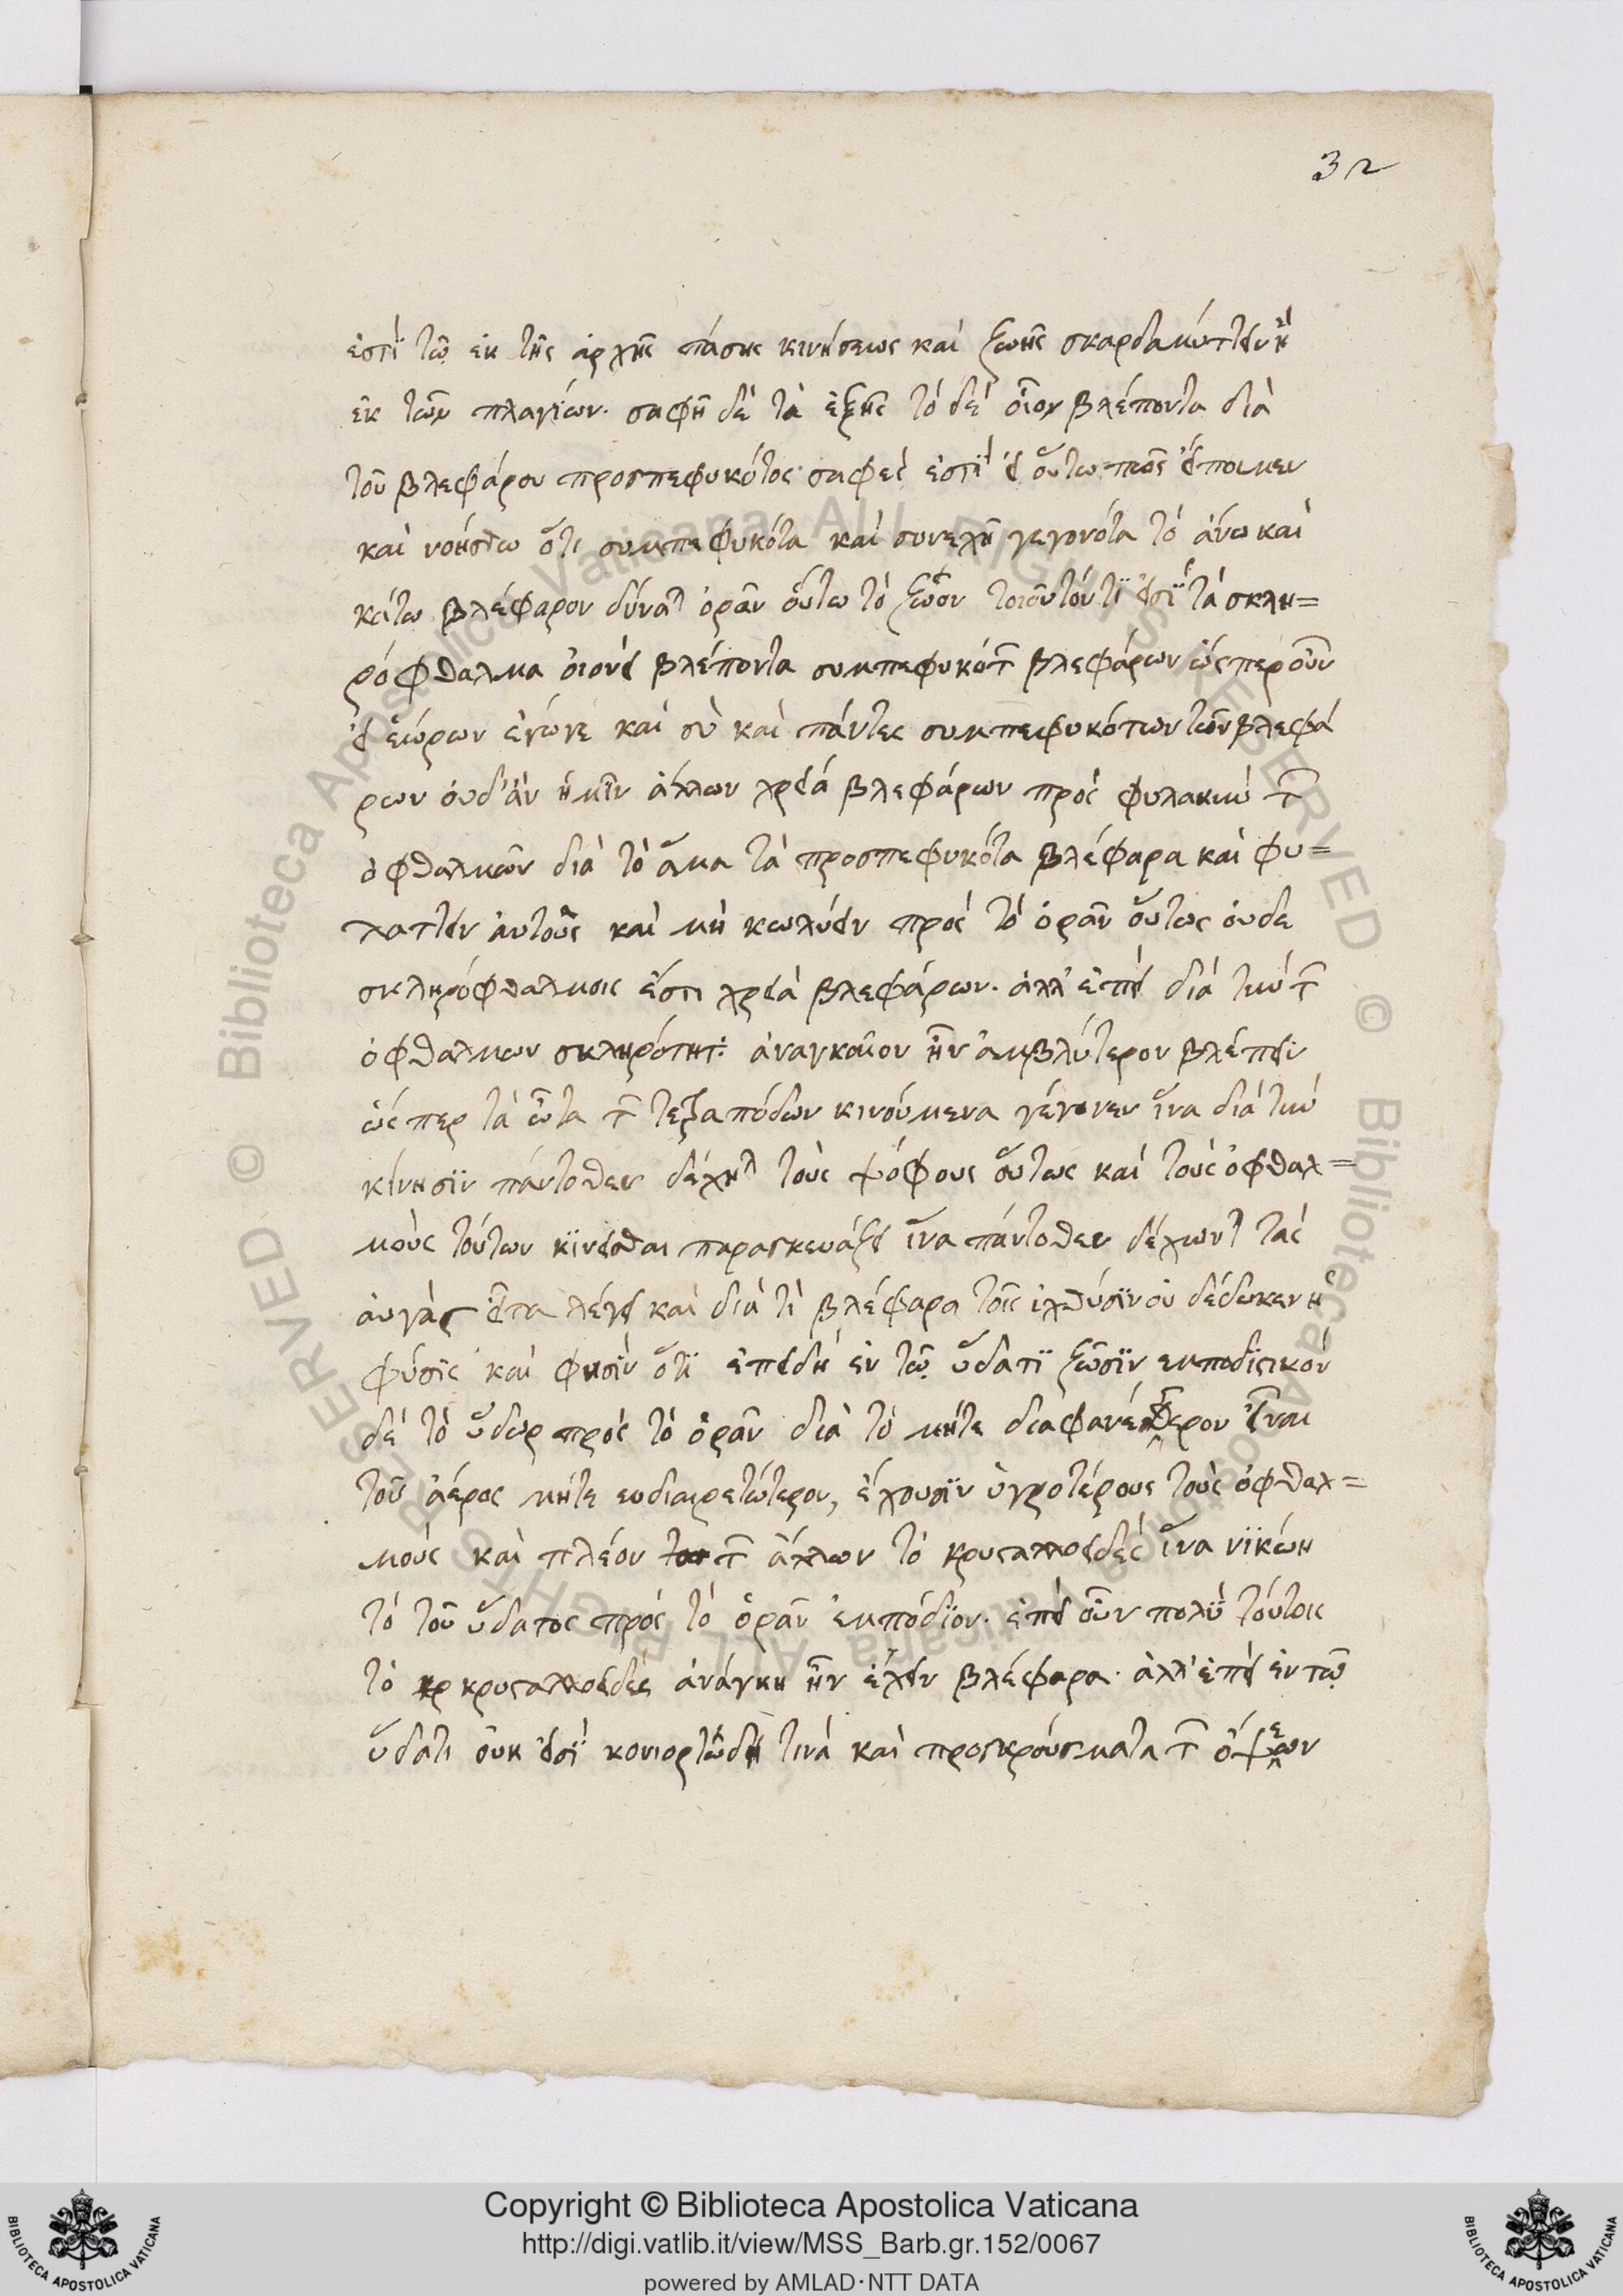 32
ἐστὶ τῷ ἐκ τῆς ἀρχῆς πάσης κινήσεως καὶ ζωῆς σκαρδαμύττειν ἢ
ἐκ τῶν πλαγίων. σαφῆ δὲ τὰ ἑξῆς τὸ δὲ οἷον βλέποντα διὰ
τοῦ βλεφάρου προσπεφυκότος· σαφές ἐστι εἰ οὕτω πῶς εἴποιμεν
καὶ νοήσθω ὅτι συμπεφυκότα καὶ συνεχῆ γεγονότα τὸ ἄνω καὶ
κάτω βλέφαρον δύναται ὁρᾶν οὕτω τὸ ζῶον τοιοῦτόν τί εἰσι τὰ σκλη=
ρόφθαλμα οἱονεὶ βλέποντα συμπεφυκότων βλεφάρων ὥσπερ οὖν
εἰ ἑώρων ἐγώγε καὶ σὺ καὶ πάντες συμπεφυκότων τῶν βλεφά
ρων οὐδ' ἂν ἡμῖν ἄλλων χρεία βλεφάρων πρὸς φυλακὴν τῶν
ὀφθαλμῶν διὰ τὸ ἅμα τὰ προσπεφυκότα βλέφαρα καὶ φυ=
λάττειν αὐτοὺς καὶ μὴ κωλύειν πρὸς τὸ ὁρᾶν οὕτως οὐδὲ
σκληρόφθαλμοις ἔστι χρεία βλεφάρων. ἀλλ' ἐπεὶ διὰ τὴν τῶν
ὀφθαλμων σκληρότητα ἀναγκαῖον ἦν ἀμβλύτερον βλέπειν
ὥσπερ τὰ ὦτα τῶν τετραπόδων κινούμενα γέγονεν ἵνα διὰ τὴν
κίνησιν πάντοθεν δέχηται τοὺς ψόφους οὕτως καὶ τοὺς ὀφθαλ=
μοὺς τούτων κινεῖσθαι παρασκευάζει ἵνα πάντοθεν δέχωνται τὰς
αὐγάς εἶτα λέγει καὶ διὰ τί βλέφαρα τοῖς ἰχθύσιν οὐ δέδωκεν ἡ
φύσις καὶ φησὶν ὅτι ἐπειδὴ ἐν τῷ ὕδατι ζῶσιν εμποδιστικὸν
δὲ τὸ ὕδωρ πρὸς τὸ ὁρᾶν διὰ τὸ μήτε διαφανέστερον εἶναι
τοῦ ἀέρος μήτε ευδιαιρετώτερον, ἔχουσιν ὑγροτέρους τοὺς ὀφθαλ=
μοὺς καὶ πλέον τῶν ἄλλων τὸ κρυσταλλοειδὲς ἵνα νικώη
τὸ τοῦ ὕδατος πρὸς τὸ ὁρᾶν ἐμπόδιον. ἐπεὶ οὖν πολὺ τούτοις
τὸ κρ κρυσταλλοειδὲς ἀνάγκη ἦν ἔχειν βλέφαρα. ἀλλ' ἐπεὶ ἐν τῷ
ὕδατι οὐκ εἰσὶ κονιορτώδη τινὰ καὶ προσκρούσματα τῶν ὄψεων
Copyright © Biblioteca Apostolica Vaticana
http://digi.vatlib.it/view/MSS_Barb.gr.152/0067
powered by AMLAD·NTT DATA